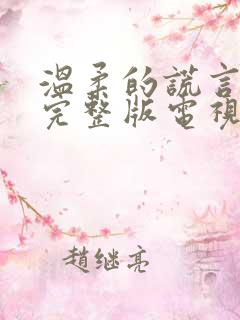 溫柔的謊言
完整版電視
趙继亮